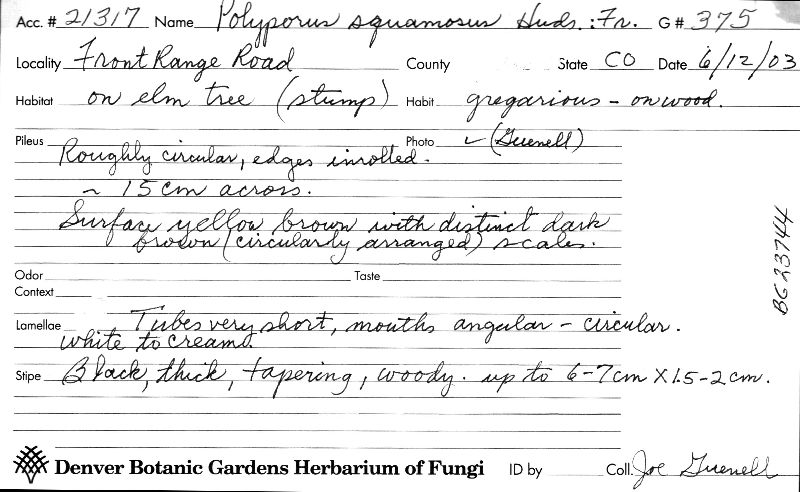 Acc. # 21317 Name Polyporus squamosus Huds.: Fr. G# 375
Locality Front Range Road County State CO Date 6/12/03
Habitat on elm tree (stump) Habit gregarious – on wood.
Pileus Photo ✓ (Guenell)
Roughly circular, edges inrolled.
~ 15 cm across.
Surface yellow brown with distinct dark
brown (circularly arranged) scales.
Odor Taste
Context
Lamellae Tubes very short, mouths angular – circular.
white to cream.
Stipe Black, thick, tapering, woody. up to 6-7cm X 1.5-2cm.
Denver Botanic Gardens Herbarium of Fungi ID by Coll. Joe Guenell
BG23744